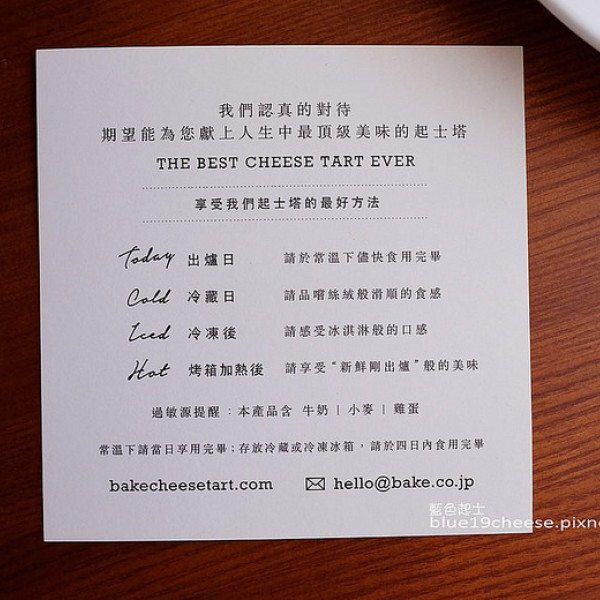 我們認真的對待
期望能為您獻上人生中最頂級美味的起士塔
THE BEST CHEESE TART EVER
享受我們起士塔的最好方法
Today 出爐日 請於常溫下儘快食用完畢
Cold 冷藏日 請品嚐絲絨般滑順的食感
Iced 冷凍後 請感受冰淇淋般的口感
Hot 烤箱加熱後 請享受“新鮮剛出爐”般的美味
過敏源提醒：本產品含 牛奶 | 小麥 | 雞蛋
常溫下請當日享用完畢；存放冷藏或冷凍冰箱，請於四日內食用完畢
bakecheesetart.com hello@bake.co.jp
藍色起士
blue19cheese.pixn